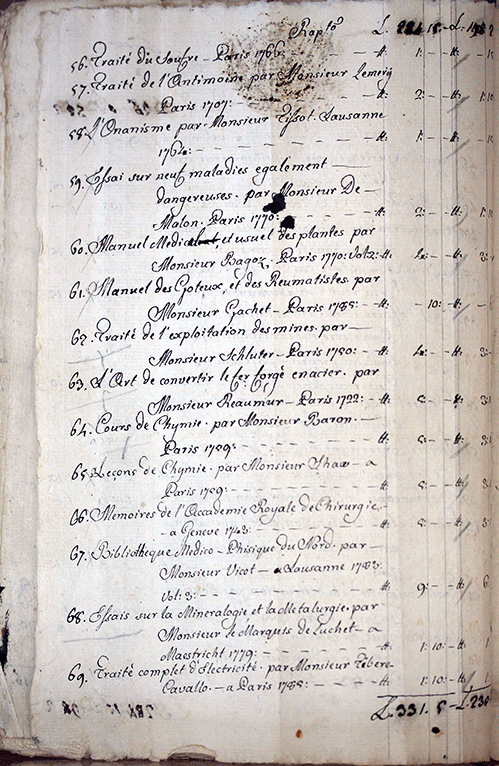 Rapto L. 331 5 - L.
56. Traité du Soufre - Paris 1766: - - - tt: 1: - tt:
57. Traité de l'Antimoine par Monsieur Lemerij
Paris 1707: - - - tt: 2: - tt: 1:10
58. L'Onanisme par Monsieur Tissot. Lausanne
1764: - - - tt: 1: - tt:
59. Essai sur neuf maladies egalement
dangereuses. par Monsieur De
Malon. Paris 1770: - - tt: 2: - tt:
60. Manuel Medical et usuel des plantes par
Monsieur Bagoz. Paris 1770: Vol: 2: tt: - tt: 3:
61. Manuel des Goteux, et des Reumatistes. par
Monsieur Gachet - Paris 1785: - tt: - 10: - tt:
62. Traité de l'exploitation des mines. par
Monsieur Schluter - Paris - tt: - tt: 3:
63. L'Art de convertir le fer forgé en acier. par
Monsieur Reaumur - Paris 1722: - tt: 5: - tt:
64. Cours de Chymie. par Monsieur Baron.
Paris - - - tt: 5: - tt:
65. Leçons de Chymie. par Monsieur Shaw - a
Paris 1759: - - - tt: 5: - tt: 3:
66. Memoires de l'Accademie Royale de Chirurgie
- a Geneve - - - tt: 5: - tt: 3:
67. Bibliotheque Medico - Phisique du Nord. par
Monsieur Vicot - a Lausanne 1783:
Vol: 3: - - - tt: 9: - tt: 6
68. Essais sur la Mineralogie et la Metalurgie. par
Monsieur le Marquis de Luchet - a
Maestricht 1779: - - - tt: 1: 10: - tt: 1
69. Traité complet d'Electricité. par Monsieur Tebere
Cavallo. - a Paris 1785: - - - tt: 1: 10: - tt: 1
L. 331. 5 - L. 230